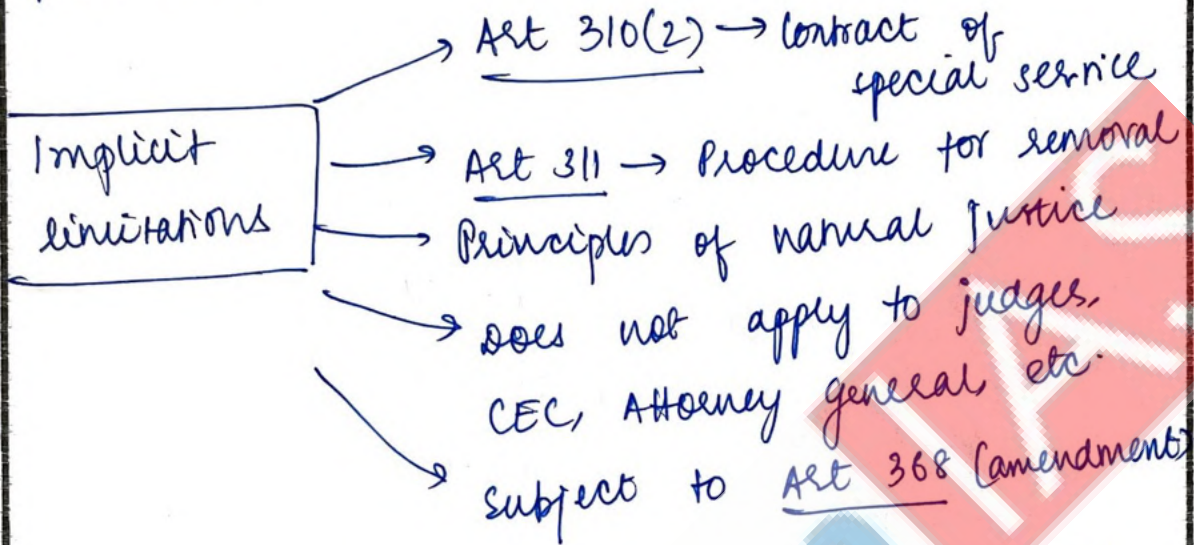 Implicit
limitations
Art 310(2) → Contract of
special service
Art 311 → Procedure for removal
Principles of natural justice
Does not apply to judges,
CEC, Attorney general, etc.
Subject to Art 368 (amendment)
IAS